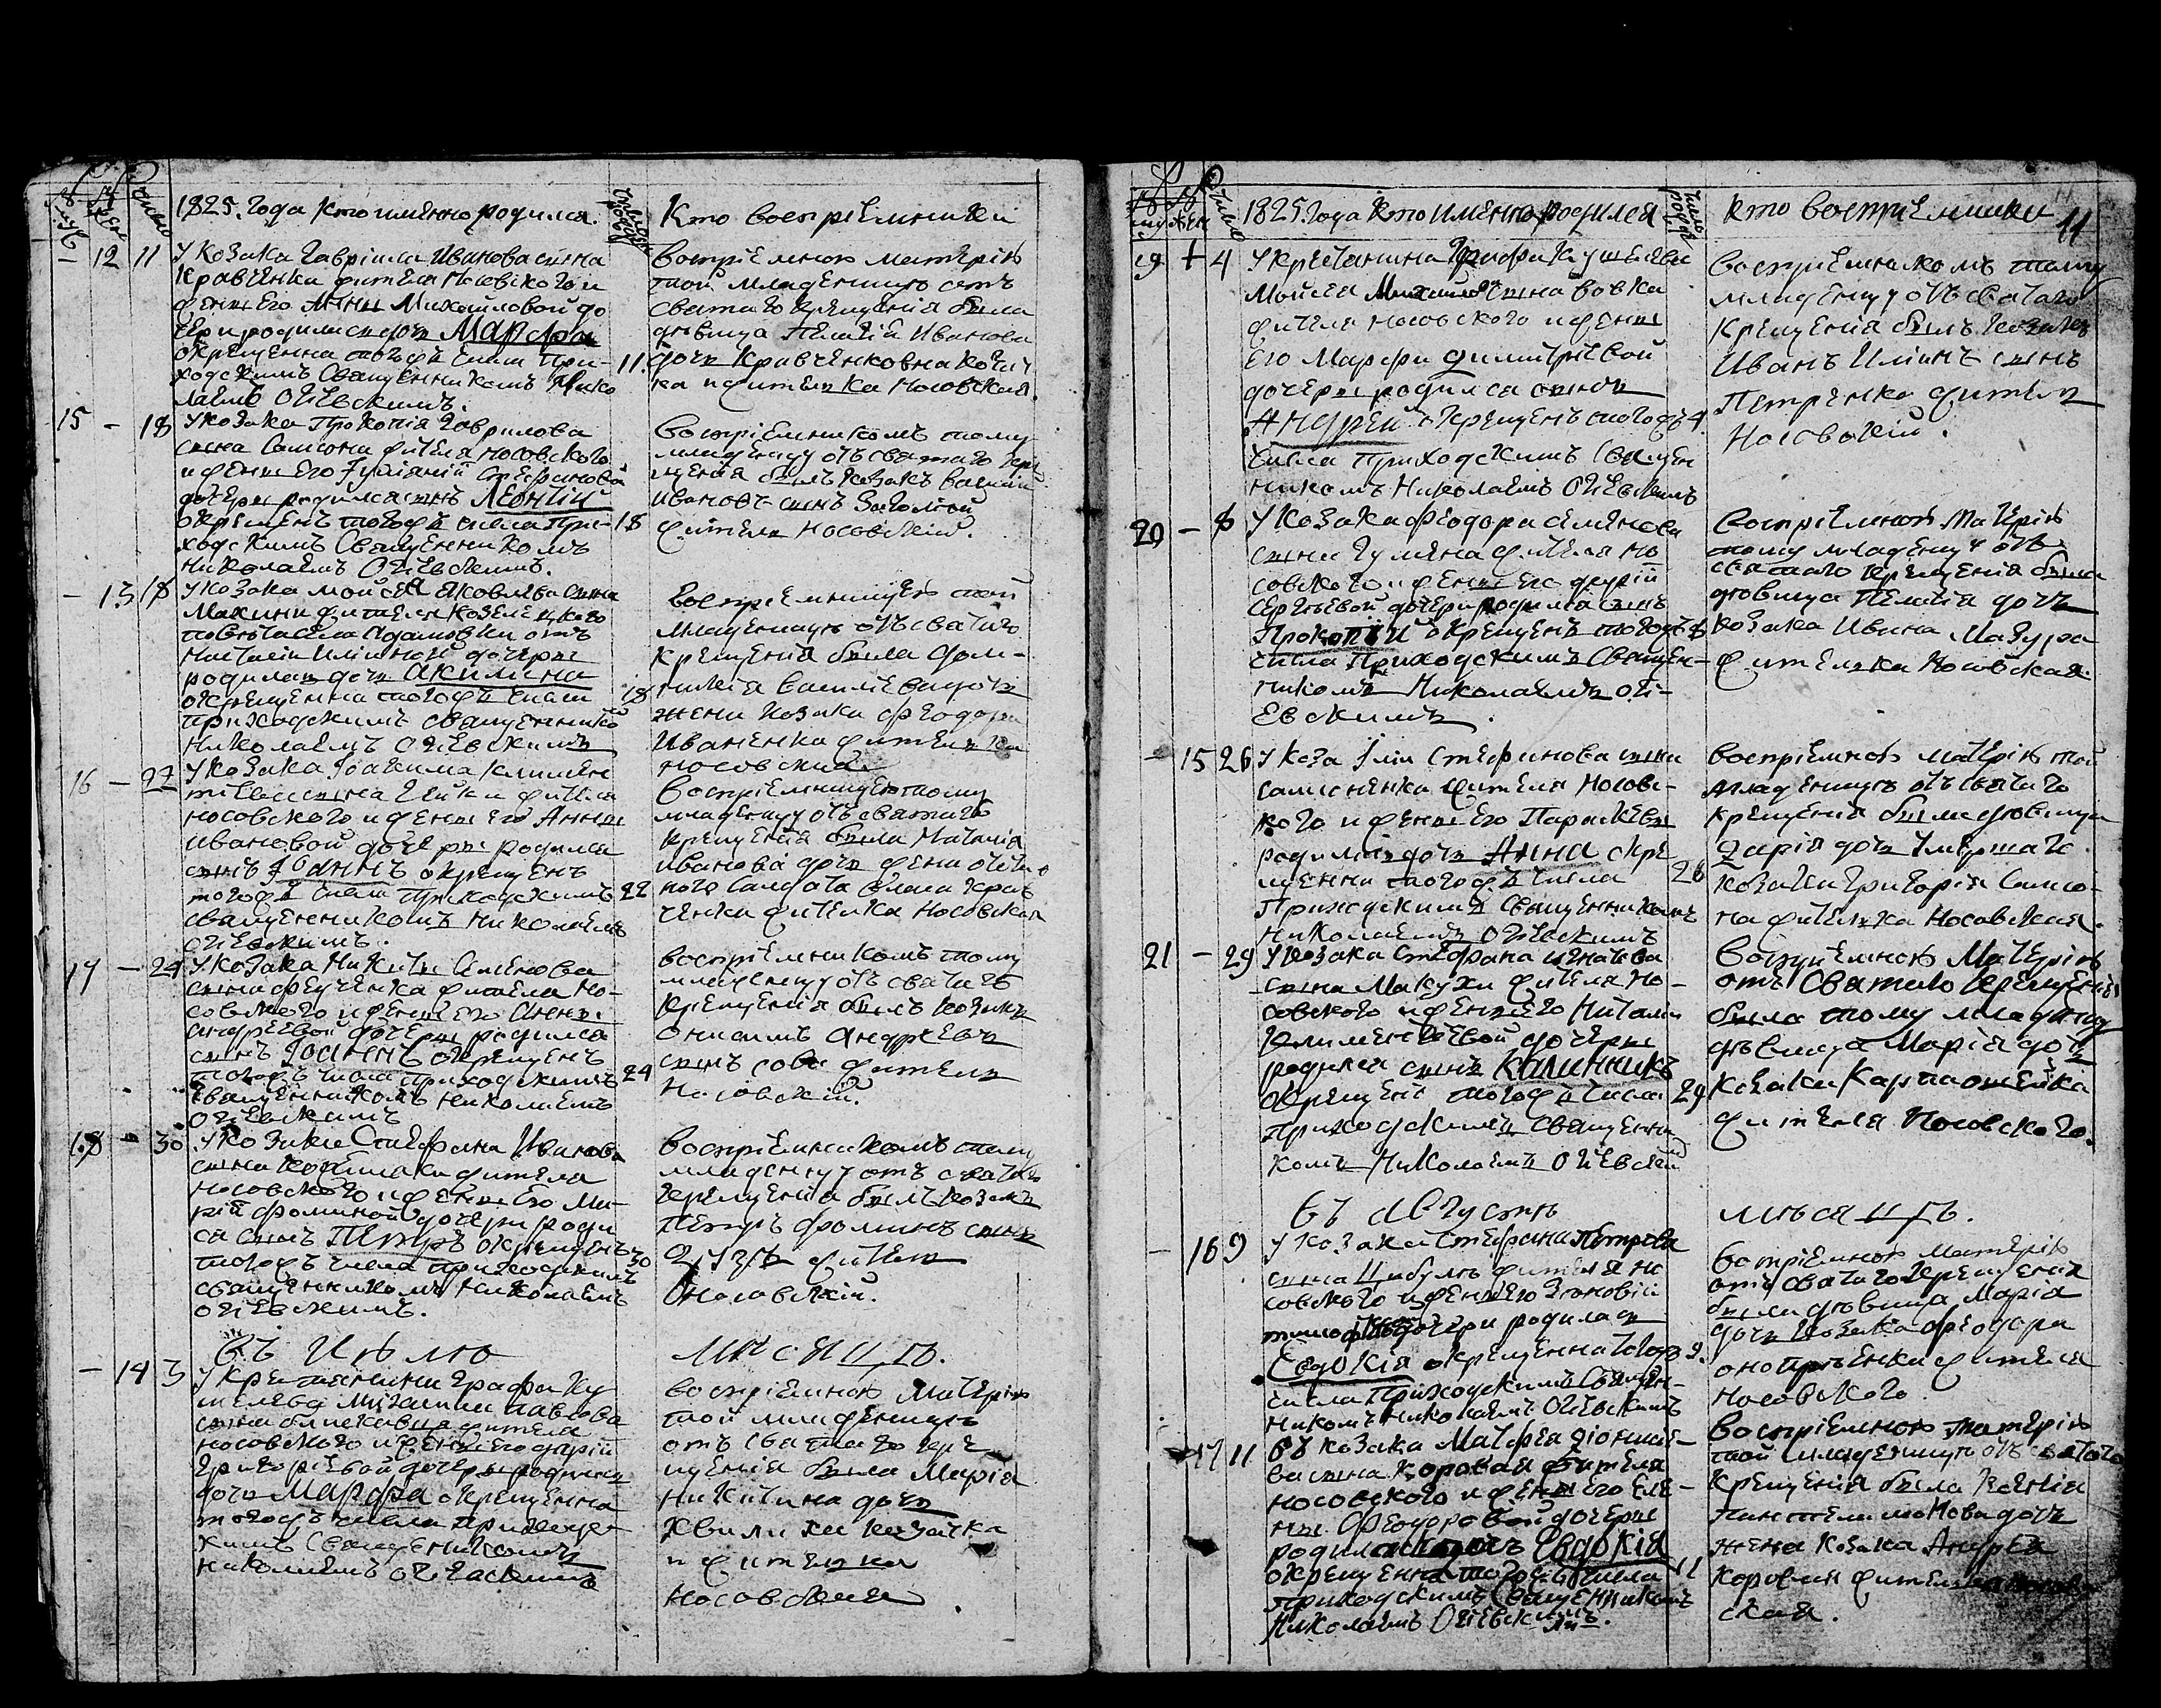 1825. года кто именно родился.
Кто воспрiемники
12 11 У козака Гаврiила Иванова сына
Кравченка жителя Носовского и
жены его Анны Михайловой до
чери родилась дочь Марфа
окрещенна тогожъ числа При-
ходскимъ Священникомъ Нико
лаемъ Огiевскимъ.
11.
воспрiемною матерiю
той младеницы отъ
святаго крещенiя была
дѣвица Пелагiя Иванова
дочь Кравченковна козач
ка и жителька Носовская.
15 - 18 У козака Прокопiя Гаврилова
сына Самсона жителя Носовского
и жены его Iулiянiи Стефановой
дочери родился сынъ Леонтiи
окрещенъ тогожъ числа При-
ходскимъ Священникомъ
Николаемъ Огiевскимъ.
18
воспрiемникомъ тому
младенцу отъ святаго кре
щенiя былъ козакъ Василiй
Ивановъ сынъ
житель Носовскiй.
- 13 18 У козака Мойсея Яковлева сына
Махини жителя Козелецкого
повѣта села Адамовки отъ
Наталiи Илiиной дочери
родилась дочь Акилина
окрещенна тогожъ числа
приходскимъ священникомъ
Николаемъ Огiевскимъ
18
воспрiемницею той
младеницы отъ святаго
крещенiя была Дом-
никiя Василiева дочь
жена козака Феодора
Иваненка жителька
носовская.
16 - 22 У козака Iоакима Климен
тiева сына Гейки жителя
носовского и жены его Анны
Ивановой дочери родился
сынъ Iоаннъ окрещенъ
тогожъ числа Приходскимъ
священникомъ Николаемъ
Огiевскимъ.
22
воспрiемницею тому
младенцу отъ святаго
крещенiя была Наталiя
Иванова дочь жена
Солдата Крав
ченка жителка Носовская
17 - 24 У козака Никиты Семенова
сына Федченка жителя Но-
совского и жены его Анны
Андреевой дочери родился
сынъ Iоаннъ окрещенъ
тогожъ числа Приходскимъ
священникомъ Николаемъ
Огiевскимъ
24
воспрiемникомъ тому
младенцу отъ святаго
крещенiя былъ козакъ
Онисимъ Андреевъ
сынъ житель
Носовскiй.
18 - 30 У козака Стефана Иванова
сына жителя
Носовского и жены его Ма-
рiи Фоминой дочери роди
ся сынъ Петръ окрещенъ
тогожъ числа приходскимъ
священникомъ Николаемъ
Огiевскимъ.
30
воспрiемникомъ тому
младенцу отъ святаго
крещенiя былъ козакъ
Петръ Фоминъ сынъ
житель
Носовскiй.
Въ Июлѣ мѣсяцѣ.
- 14 3 У крестянина графа Ку
шелева Михаила Павлова
сына жителя
носовского и жены его Дарiи
Григорiевой дочери родилась
дочь Марфа окрещенна
тогожъ числа приходс-
кимъ Священникомъ
Николаемъ Огiевскимъ
воспрiемною матерiю
той младеницы
отъ святаго кре
щенiя была Марiя
Никитина дочь
козачка
и жителька
носовская.
1825 Года Кто именно родился
Кто воспрiемники
11
19 + 4 У крестянина Графа Кушелева
Мойсея сына Вовка
жителя Носовского и жены
его Марфы Димитрiевой
дочери родился сынъ
Андрей окрещенъ тогожъ
числа Приходскимъ Священ
никомъ Николаемъ Огiевскимъ
4.
воспрiемникомъ тому
младенцу отъ святаго
крещенiя былъ козакъ
Иванъ Илiинъ сынъ
Петренко житель
Носовскiй.
20 - 8 У козака Феодора Семенова
сына Гумена жителя Но
совского и жены его Дарiи
Сергѣевой дочери родился сынъ
Прокопiй окрещенъ тогожъ
числа Приходскимъ Священ-
никомъ Николаемъ Огi-
евскимъ.
8
воспрiемною матерiю
тому младенцу отъ
святаго крещенiя была
дѣвица Пелагiя дочь
козака Ивана Мазура
жителька Носовская.
- 15 26 У коза Iлiи Стефанова сына
Самсоненка жителя Носовс-
кого и жены его Параскевы
родилась дочь Анна окре
щенна тогожъ числа
Приходскимъ Священникомъ
Николаемъ Огiевскимъ
26
воспрiемною матерiю той
младеницы отъ святаго
крещенiя была дѣвица
Дарiя дочь умершаго
козака Григорiя Самсо-
на жителька Носовская.
21 - 29 У козака Стефана Игнатова
сына Макухи жителя Но-
совского и жены его Наталiи
Климентiевой дочери
родился сынъ Калинникъ
окрещенъ тогожъ числа
Приходскимъ Священни
комъ Николаемъ Огiевским
29
воспрiемною матерiю
отъ Святаго Крещенiя
была тому младенцу
дѣвица Марiя дочь
козака Карпа
жителя Носовского.
Въ Августѣ мѣсяцѣ.
- 16 9 У козака Стефана Петрова
сына Цибулѣ жителя Но
совского и жены его Зѣновiи
дочери родилась
Евдокiя окрещенна тогожъ
числа Приходскимъ Священ-
никомъ Николаемъ Огiевскимъ
9.
воспрiемною матерiю
отъ святаго крещенiя
была дѣвица Марiя
дочь козака Феодора
Оноприенка жителя
Носовского
17 11 Въ козака Матфея Дiонисiе-
ва сына Коровая жителя
носовского и жены его Еле-
ны Феодоровой дочери
родилась дочь Евдокiя
окрещенна тогожъ числа
приходскимъ Священникомъ
Николаемъ Огiевскимъ.
11
воспрiемною матерiю
той младеницы отъ святаго
крещенiя была Ксенiя
Пантелимонова дочь
жена козака Андрея
Коровая жителька Носов
ская.